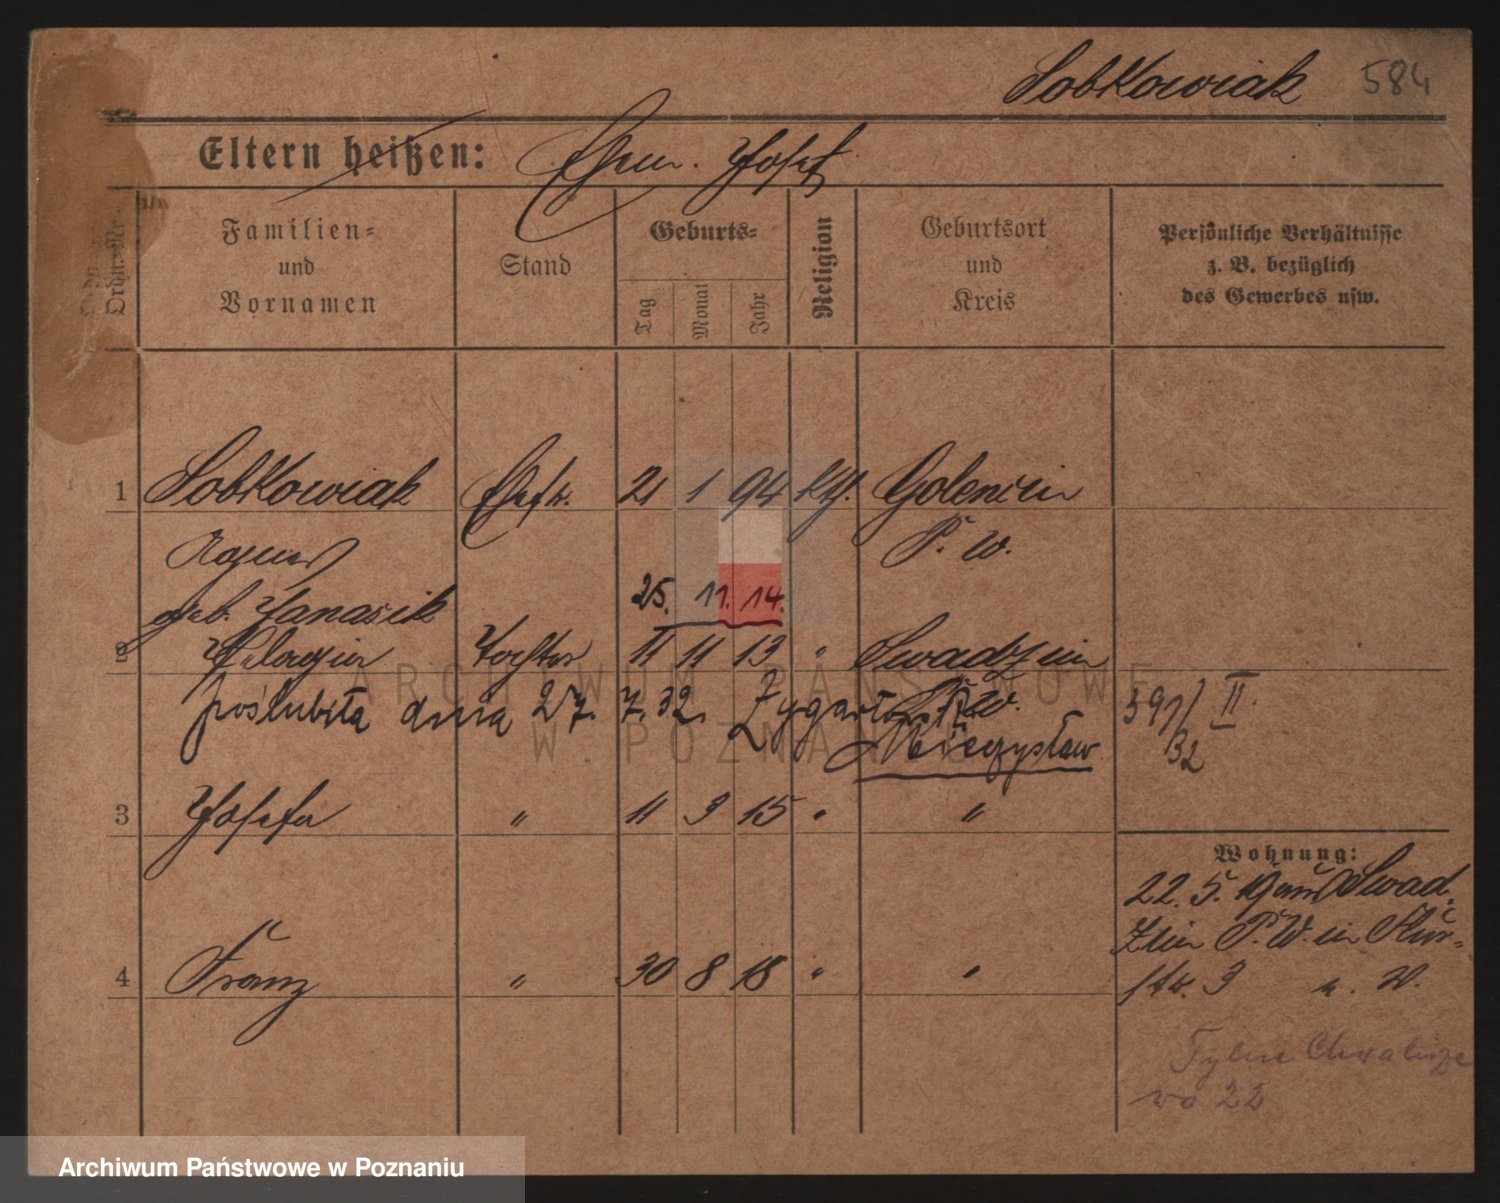 Sobkowiak 584
Eltern heißen: Ehem. Josef
Ordn.-Nr.
Familien-
und
Vornamen
Stand
Geburts-
Tag
Monat
Jahr
Religion
Geburtsort
und
Kreis
Persönliche Verhältnisse
z. B. bezüglich
des Gewerbes usw.
1 Sobkowiak Ehefr. 21 1 94 kth. Golencin
Agnes P. W.
geb. Janasik 25. 11. 14.
2 Pelagia Tochter 11 11 13 " Swadzim
P. W.
poślubiła dnia 27. 7. 32. Zygarłowski 591/ II.
Mieczysław 32
3 Josefa " 11 3 15 " "
Wohnung:
22. 5. 19 aus Swad-
zim P. W. in
4 Franz " 30 8 18 " "
str. 3
Tylne Chwalisze
wo 22
ARCHIWUM PAŃSTWOWE
W POZNANIU
Archiwum Państwowe w Poznaniu